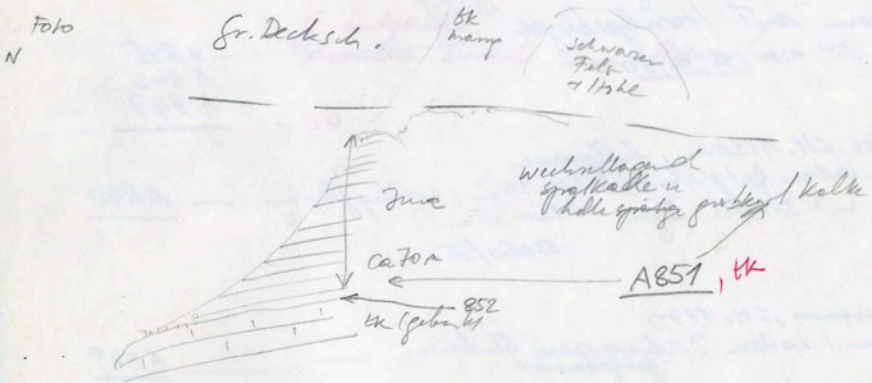 Foto
N
Gr. Decksch.
tk
mang
Schwarzer
Fels
Höhe
wechsellagernd
spatkalke u
helle spätige grobkö Kalke
Jura
ca 70 m
A851, tk
852
tk (gebankt)